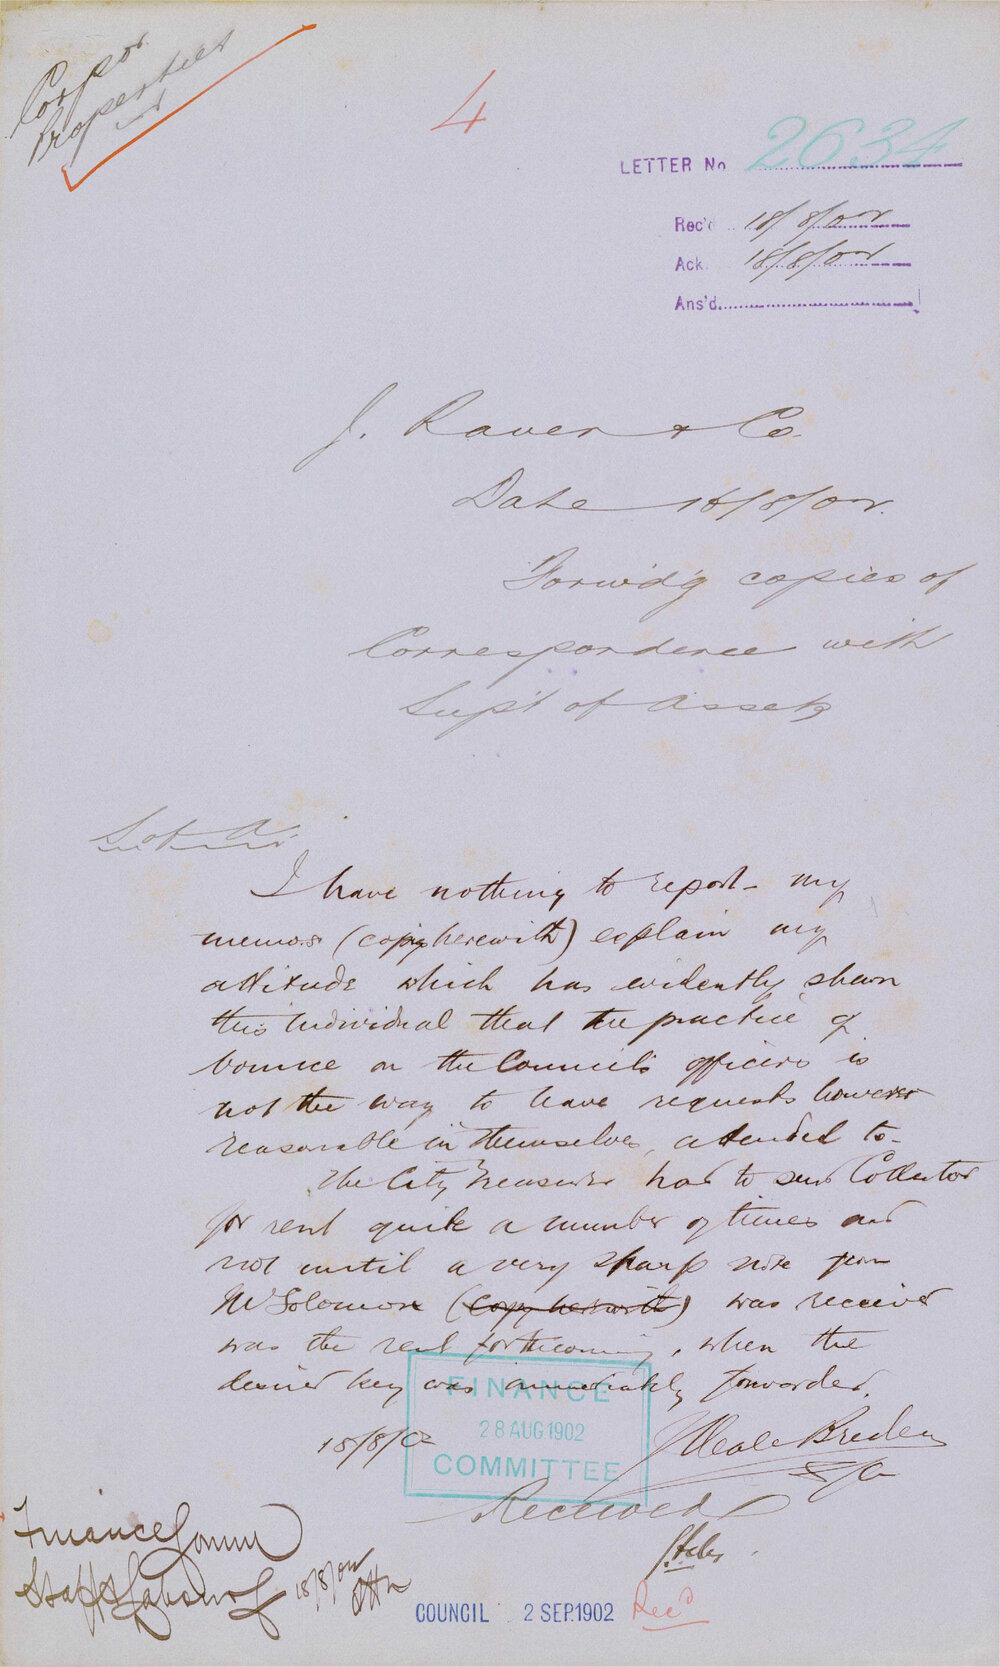 Corpor
Properties
4
LETTER No 2634
Rec'd 18/8/02
Ack. 18/8/02
Ans'd.
J. Raven & Co.
Date 16/8/02.
Forwd'g copies of
Correspondence with
Supt of Assets
I have nothing to report - my
memos (copy herewith) explain my
attitude which has evidently shown
this individual that the practice of
bounce on the Council's officers is
not the way to have requests however
reasonable in themselves, attended to -
The City Treasurer had to send Collector
for rent quite a number of times and
not until a very sharp note from
Mr Solomon (copy herewith) was received
was the rent forthcoming, when the
desired key was immediately forwarded.
18/8/02
S/A
FINANCE
28 AUG 1902
COMMITTEE
Received
Finance Comm
Staff & Labour 18/8/02
COUNCIL 2 SEP. 1902 Rec'd